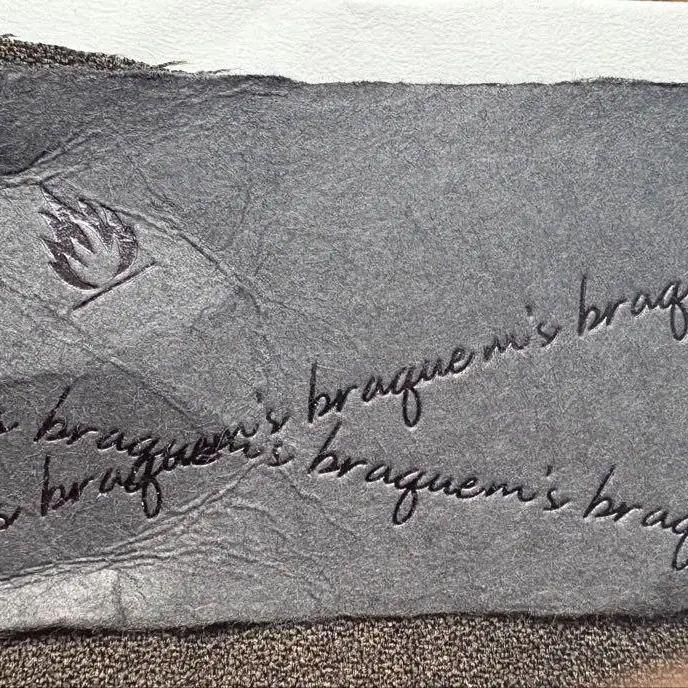 braquem's braquem's braq
braquem's braquem's braq